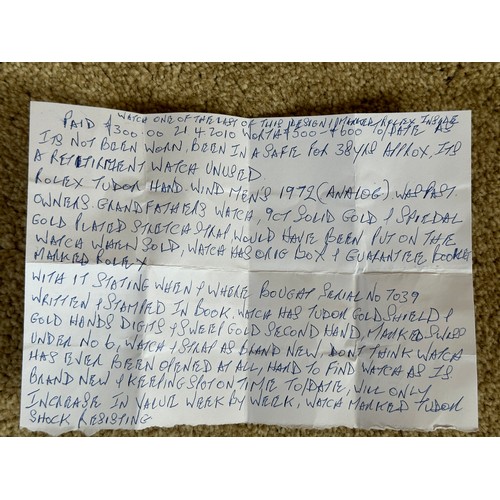 WATCH ONE OF THE LAST OF THIS DESIGN, MARKED ROLEX INSIDE
PAID $300.00 21 4 2010 WORTH $500-$600 TO/DATE AS
ITS NOT BEEN WORN, BEEN IN A SAFE FOR 38YRS APPROX, ITS
A RETIREMENT WATCH UNUSED.
ROLEX TUDOR HAND WIND MENS 1972 (ANALOG) WAS PAST
OWNERS GRANDFATHERS WATCH, 9CT SOLID GOLD & SPEIDAL
GOLD PLATED STRETCH STRAP, WOULD HAVE BEEN PUT ON THE
WATCH WHEN SOLD, WATCH HAS ORIG BOX & GUARANTEE BOOKLET
MARKED ROLEX
WITH IT STATING WHEN & WHERE BOUGHT SERIAL NO 7039
WRITTEN & STAMPED IN BOOK. WATCH HAS TUDOR GOLD SHIELD &
GOLD HANDS DIGITS & SWEEP GOLD SECOND HAND, MARKED SWISS
UNDER NO 6, WATCH & STRAP AS BRAND NEW, DONT THINK WATCH
HAS EVER BEEN OPENED AT ALL, HARD TO FIND WATCH AS IS
BRAND NEW & KEEPING SPOT ON TIME TO/DATE, WILL ONLY
INCREASE IN VALUE WEEK BY WEEK, WATCH MARKED TUDOR
SHOCK RESISTING